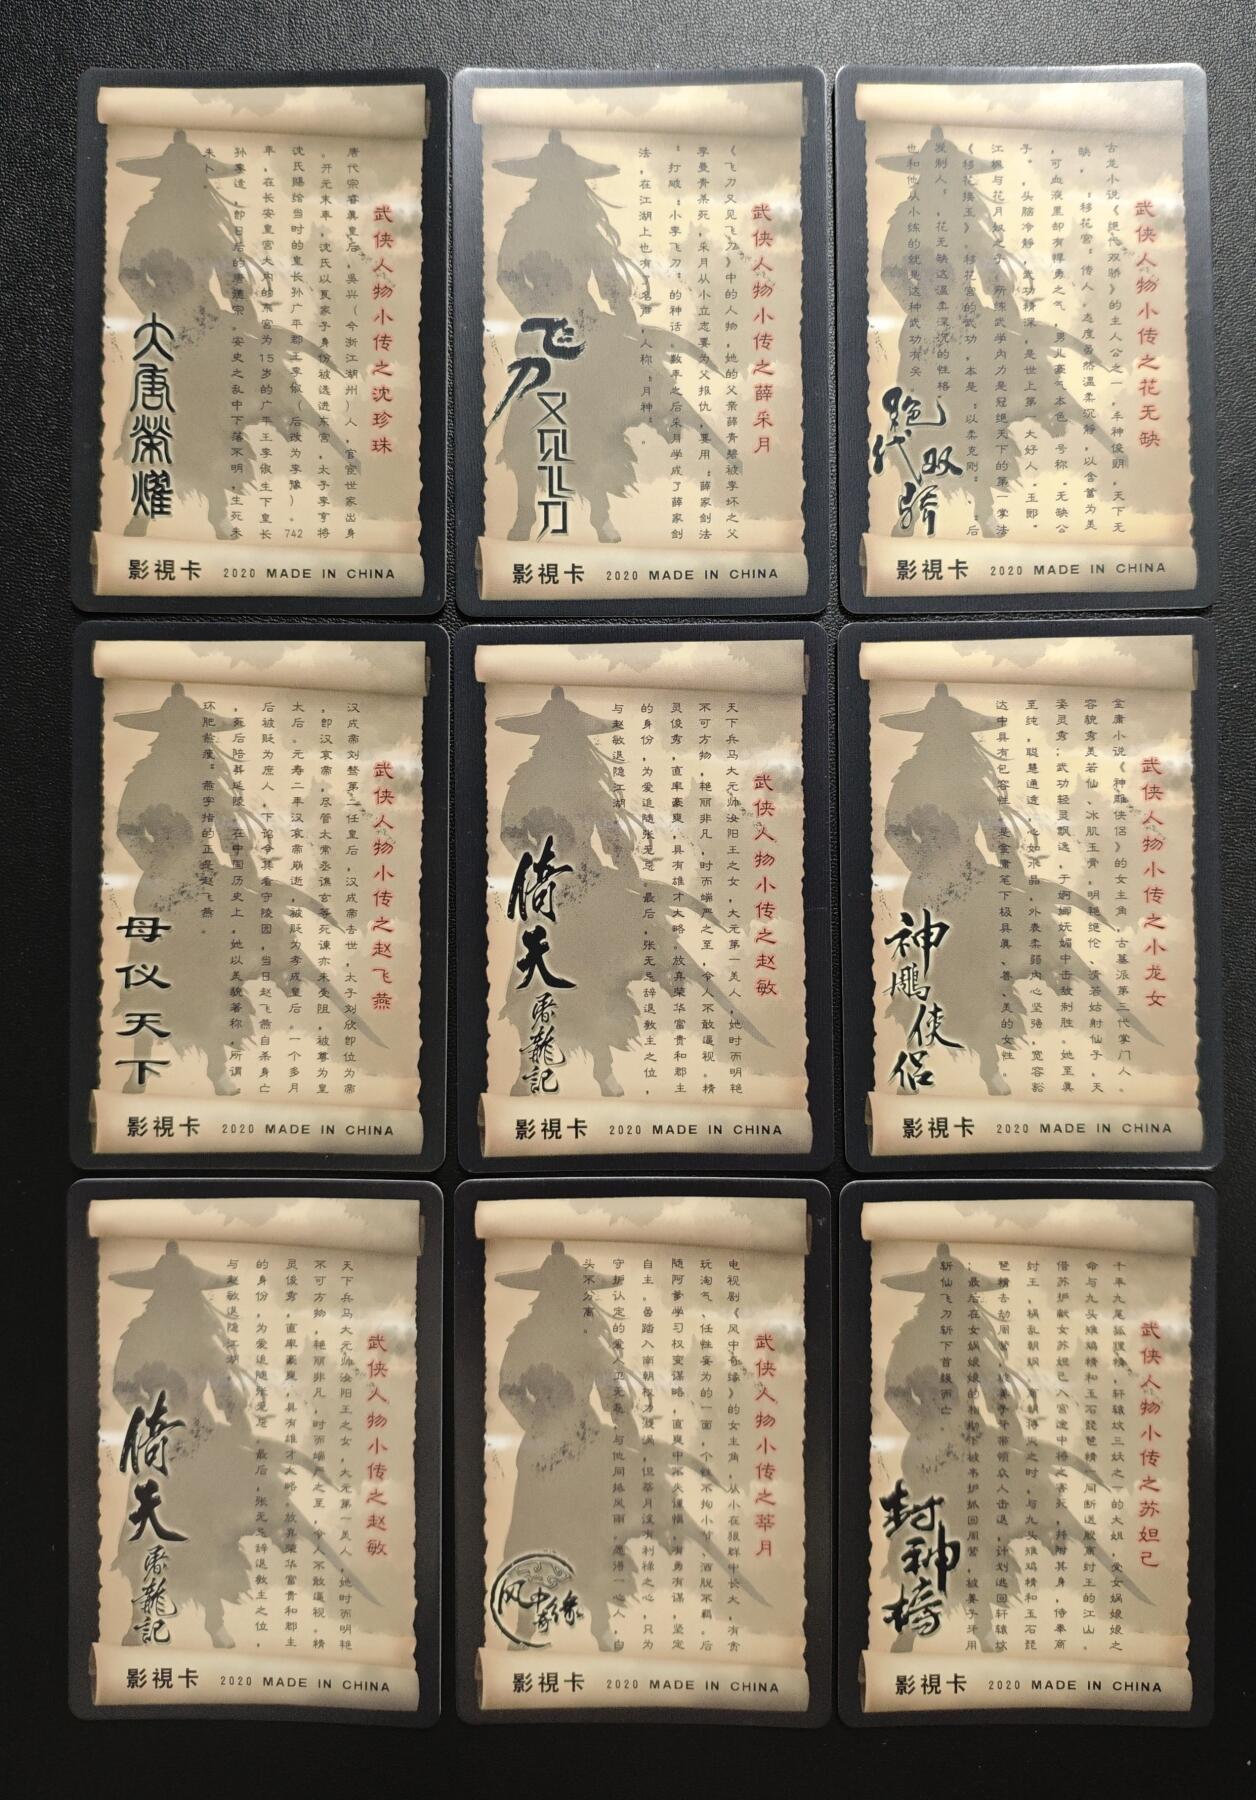 武侠人物小传之沈珍珠
唐代宗睿真皇后，吴兴（今浙江湖州）人，官宦世家出身
。开元末年，沈氏以良家子身份被选进东宫，太子李亨将
沈氏赐给当时的皇长孙广平郡王李俶（后改为李豫）。742
年，在长安皇宫大内的东宫为15岁的广平王李俶生下皇长
孙李适，即日后的唐德宗。安史之乱中下落不明，生死未
卜。
大唐荣耀
影視卡 2020 MADE IN CHINA
武侠人物小传之薛采月
《飞刀又见飞刀》中的人物，她的父亲薛青碧被李坏之父
李曼青杀死，采月从小立志要为父报仇，要用：薛家剑法
：打破：小李飞刀：的神话。数年之后采月学成了薛家剑
法，在江湖上也有了名声，人称：月神：。
飞刀又见飞刀
影視卡 2020 MADE IN CHINA
武侠人物小传之花无缺
古龙小说《绝代双骄》的主人公之一，丰神俊朗，天下无
缺，：移花宫：传人，态度虽然温柔沉静，以含蓄为美
，可血液里却有悍勇之气，男儿豪气本色，号称“无缺公
子”，头脑冷静，武功精深，是世上第一大好人“玉郎”
江枫与花月奴之子。所练武学内力是冠绝天下的第一掌法
《移花接玉》。移花宫的武功，本是：以柔克刚：，：后
发制人：，花无缺这温柔深沉的性格，
也和他从小练的就是这种武功有关。
绝代双骄
影視卡 2020 MADE IN CHINA
武侠人物小传之赵飞燕
汉成帝刘骜第二任皇后，汉成帝去世，太子刘欣即位为帝
，即汉哀帝，尽管太常丞谯玄等死谏亦未受阻，被尊为皇
太后。元寿二年汉哀帝崩逝，被贬为孝成皇后。一个多月
后被贬为庶人，下诏令其看守陵园，当日赵飞燕自杀身亡
，死后陪葬延陵。在中国历史上，她以美貌著称，所谓：
环肥燕瘦：燕字指的正是赵飞燕。
母仪天下
影視卡 2020 MADE IN CHINA
武侠人物小传之赵敏
天下兵马大元帅汝阳王之女，大元第一美人，她时而明艳
不可方物，艳丽非凡，时而端严之至，令人不敢逼视。精
灵俊秀，直率豪爽，具有雄才大略。放弃荣华富贵和郡主
的身份，为爱追随张无忌。最后，张无忌辞退教主之位，
与赵敏退隐江湖。
倚天屠龍記
影視卡 2020 MADE IN CHINA
武侠人物小传之小龙女
金庸小说《神雕侠侣》的女主角，古墓派第三代掌门人。
容貌秀美若仙、冰肌玉骨，明艳绝伦、清若姑射仙子，天
姿灵秀；武功轻灵飘逸，于婀娜妩媚中击敌制胜。她至真
至纯，聪慧通透，心如水晶，外表柔弱内心坚强，宽容豁
达中具有包容性。是金庸笔下极具真、善、美的女性。
神鵰侠侣
影視卡 2020 MADE IN CHINA
武侠人物小传之赵敏
天下兵马大元帅汝阳王之女，大元第一美人，她时而明艳
不可方物，艳丽非凡，时而端严之至，令人不敢逼视。精
灵俊秀，直率豪爽，具有雄才大略。放弃荣华富贵和郡主
的身份，为爱追随张无忌。最后，张无忌辞退教主之位，
与赵敏退隐江湖。
倚天屠龍記
影視卡 2020 MADE IN CHINA
武侠人物小传之莘月
电视剧《风中奇缘》的女主角，从小在狼群中长大，有贪
玩淘气、任性妄为的一面，个性不拘小节、洒脱不羁。后
随阿爹学习权变谋略，直爽中不失谨慎，有勇有谋，坚定
自主。虽踏入南朝权力漩涡，但莘月没有利禄之心，只为
守护认定的爱人卫无忌，与他同捲风雨，愿得一心人，白
头不分离。
风中奇缘
影視卡 2020 MADE IN CHINA
武侠人物小传之苏妲己
千年九尾狐狸精，轩辕坟三妖之一的大姐，受女娲娘娘之
命与九头雉鸡精和玉石琵琶精一同断送殷商纣王的江山。
借苏护献女苏妲己入宫途中将之害死，并附其身，侍奉商
纣王，祸乱朝纲，商朝将灭之时，与九头雉鸡精和玉石琵
琶精去劫周营，被姜子牙带领众人击退，计划逃回轩辕坟
：最后在女娲娘娘的相助下被韦护抓回周营，被姜子牙用
斩仙飞刀斩下首级而亡。
封神榜
影視卡 2020 MADE IN CHINA